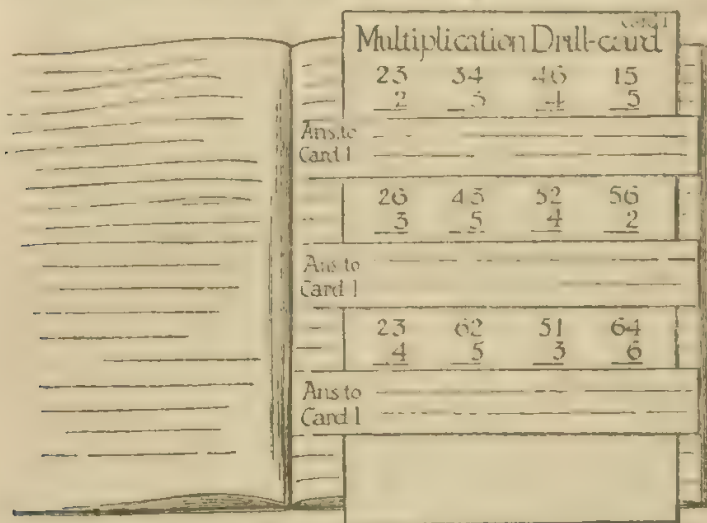 Card 1
Multiplication Drill-card
23 34 46 15
2 3 4 5
Ans. to
Card 1
26 43 52 56
3 5 4 2
Ans to
Card 1
23 62 51 64
4 5 3 6
Ans to
Card 1